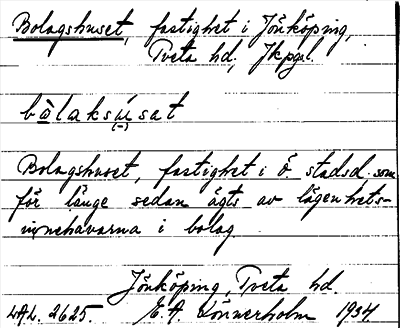 Bolagshuset, fastighet i Jönköping,
Tveta hd, Jkpgl.
bòlaksúsat
(-)
Bolagshuset, fastighet i ö. stadsd. som
för länge sedan ägts av lägenhets-
innehavarna i bolag.
Jönköping, Tveta hd.
LAL. 2625. E. A. Lönnerholm 1934